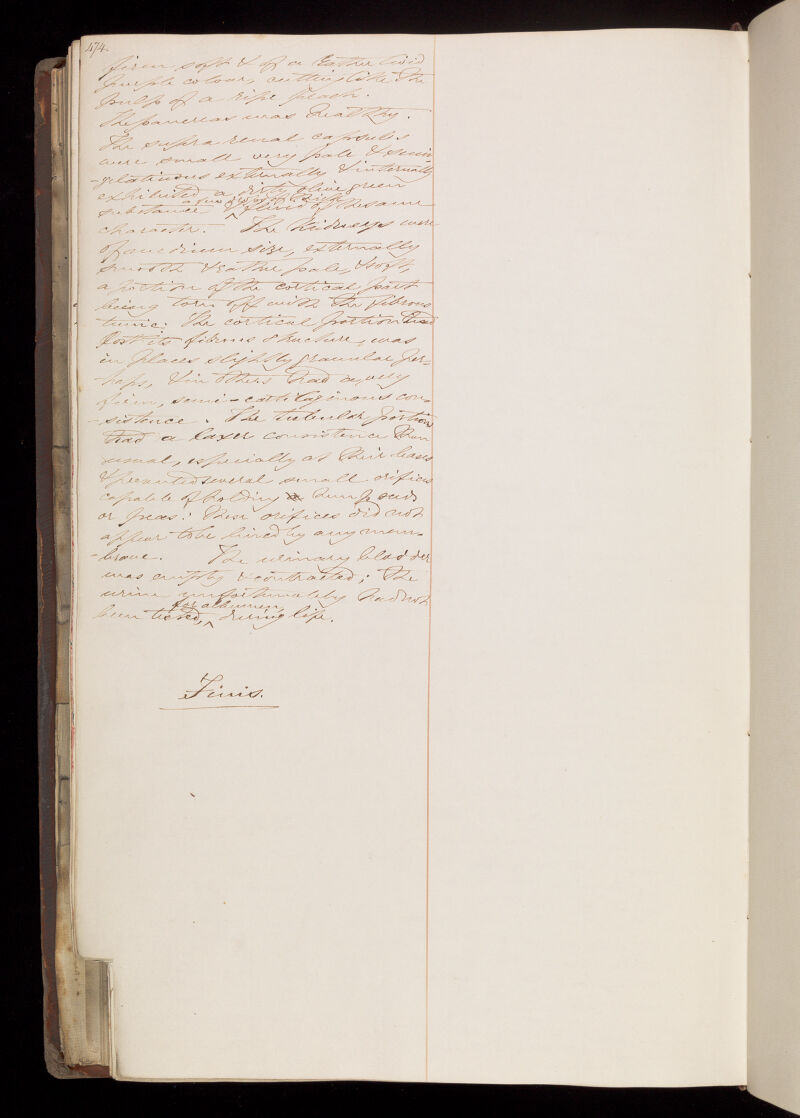 474.
firm, soft & of a rather livid
purple colour, cutting like the
pulp of a ripe peach.
The pancreas was healthy.
The supra renal capsules
were small very pale & semi
-gelatinous externally & internally
exhibited a dirty olive green
substance & a few drops of thick fluid of the same
character. The Kidneys were
of medium size, externally
smooth & rather pale, & soft,
a portion of the cortical part
being torn off with the fibrous
tunic: The cortical portion had
lost its fibrous structure, was
in places slightly granular per-
-haps, & in others had a very
firm, semi-cartilaginous con-
-sistence. The tubular portion
had a laxer consistence than
usual, especially at their bases
& presented several small orifices
capable of holding hemp seed
or peas: These orifices did not
appear to be lined by any mem-
-brane. The urinary bladder
was empty & contracted; The
urine unfortunately had not
been tested, for albumen, during life.
Finis.